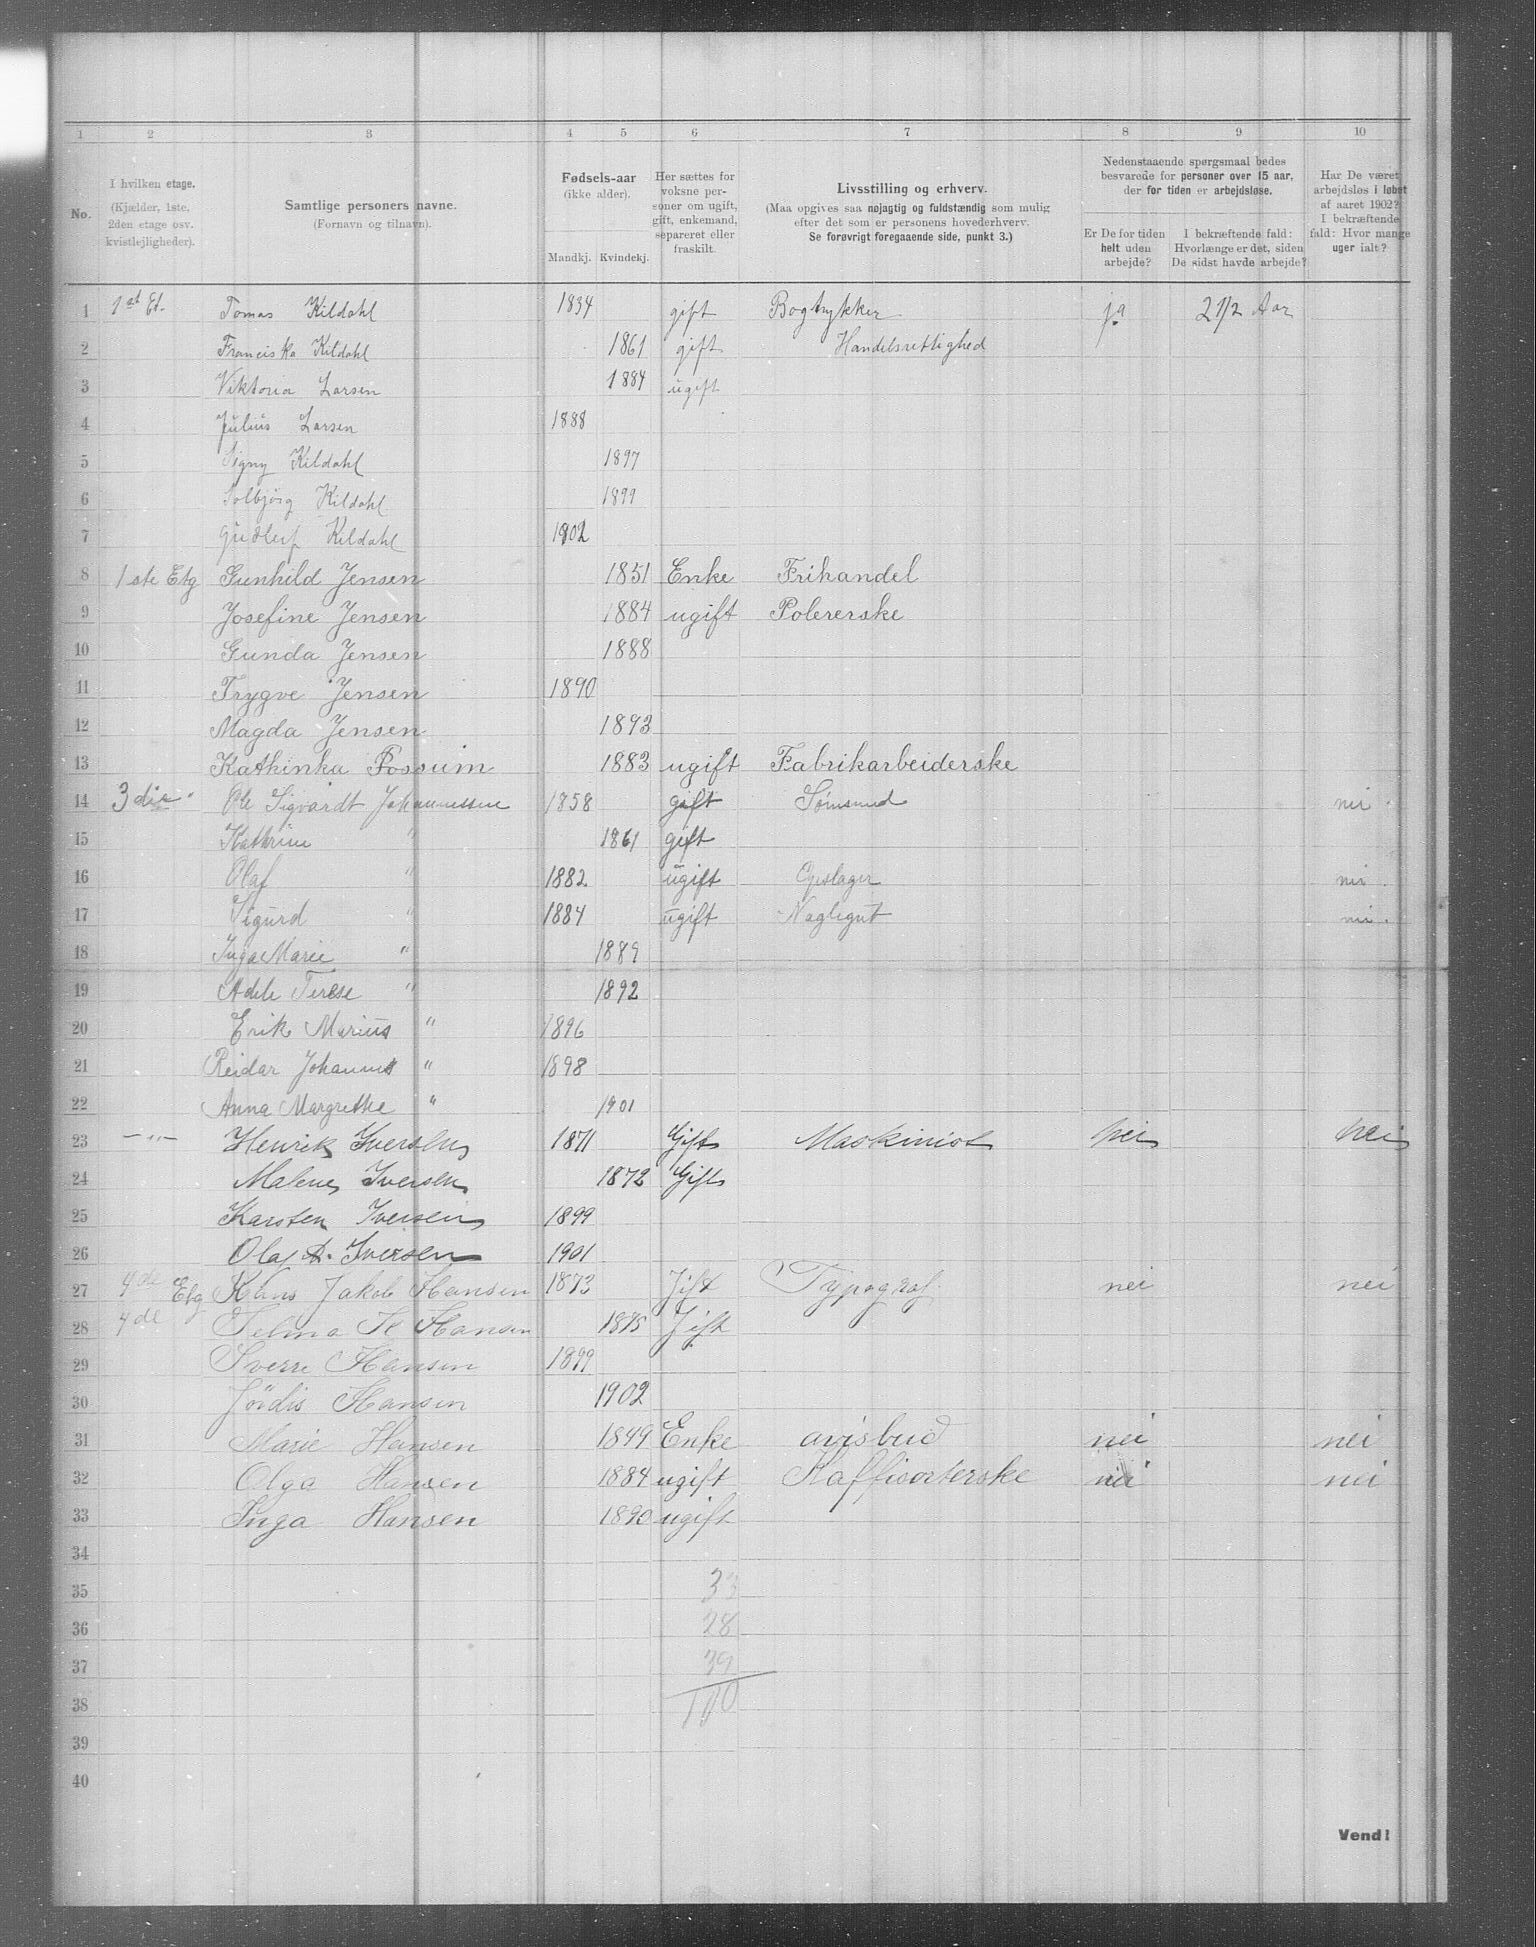 1 2 3 4 5 6 7 8 9 10
No.
I hvilken etage. (Kjælder, 1ste, 2den etage osv. kvistlejligheder).
Samtlige personers navne. (Fornavn og tilnavn).
Fødsels-aar (ikke alder). Mandkj. Kvindekj.
Her sættes for voksne personer om ugift, gift, enkemand, separeret eller fraskilt.
Livsstilling og erhverv. (Maa opgives saa nøjagtig og fuldstændig som mulig efter det som er personens hovederhverv. Se forøvrigt foregaaende side, punkt 3.)
Nedenstaaende spørgsmaal bedes besvarede for personer over 15 aar, der for tiden er arbejdsløse.
Er De for tiden helt uden arbejde?
I bekræftende fald: Hvorlænge er det, siden De sidst havde arbejde?
Har De været arbejdsløs i løbet af aaret 1902? I bekræftende fald: Hvor mange uger ialt?
1 1st Et. Tomas Kildahl 1834 gift Bogtrykker ja 2 1/2 Aar
2 Franciska Kildahl 1861 gift Handelsrettighed
3 Viktoria Larsen 1884 ugift
4 Julius Larsen 1888
5 Signy Kildahl 1897
6 Solbjørg Kildahl 1899
7 Gudleif Kildahl 1902
8 1ste Etg Gunhild Jensen 1851 Enke Frihandel
9 Josefine Jensen 1884 ugift Polererske
10 Gunda Jensen 1888
11 Trygve Jensen 1890
12 Magda Jensen 1893
13 Kathinka Possum 1883 ugift Fabrikarbeiderske
14 3die " Ole Sigvardt Johannessen 1858 gift Sømsmed nei
15 Kathrine " 1861 gift
16 Olaf " 1882 ugift nei
17 Sigurd " 1884 ugift nei
18 Inga Marie " 1889
19 Adele Terese " 1892
20 Erik Marius " 1896
21 Reidar Johannes " 1898
22 Anna Margrethe " 1901
23 —"— Henrik Iversen 1871 Gift Maskinist nei nei
24 Malene Iversen 1872 Gift
25 Karsten Iversen 1899
26 Olaf A. Iversen 1901
27 4de Etg Hans Jakob Hansen 1873 Gift Typograf nei nei
28 4de Selma K Hansen 1875 Gift
29 Sverre Hansen 1899
30 Jördis Hansen 1902
31 Marie Hansen 1849 Enke avisbud nei nei
32 Olga Hansen 1884 ugift Kaffisorterske nei nei
33 Inga Hansen 1890 ugift
34
35 33
36 28
37 39
38 100
39
40
Vend!